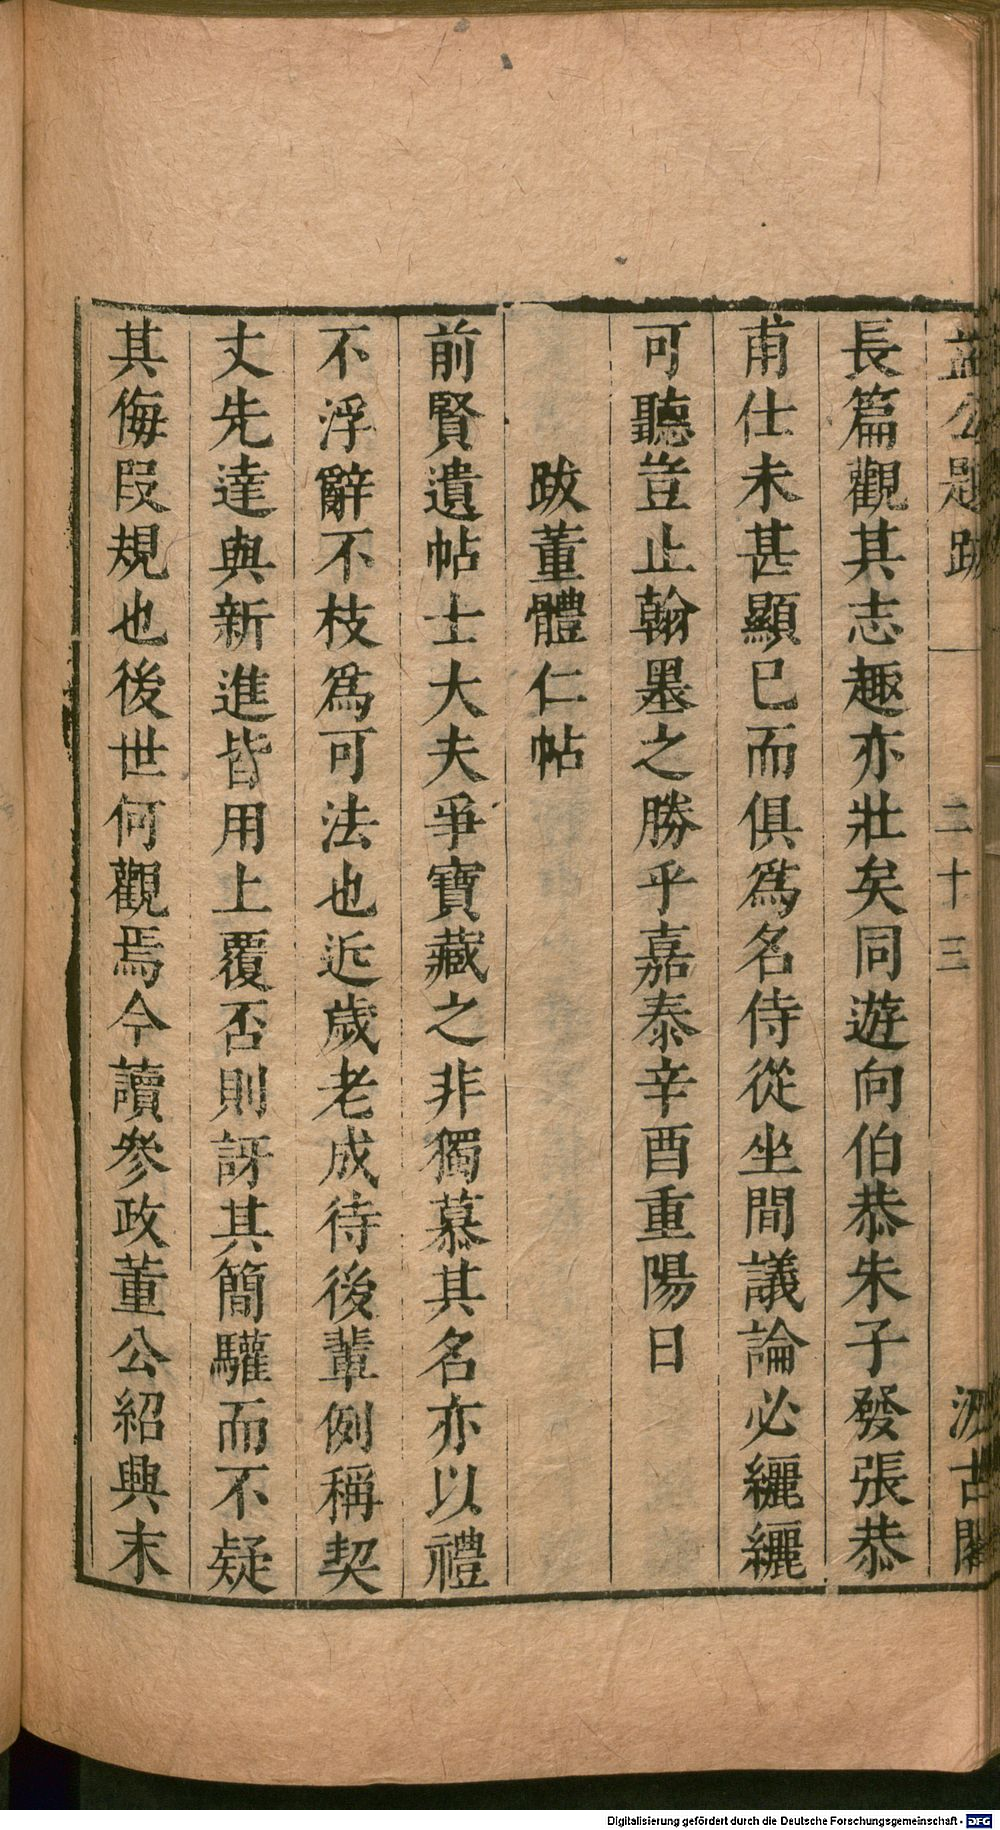 益公題跋 二十三 汲古閣
長篇觀其志趣亦壯矣同遊向伯恭朱子發張恭
甫仕未甚顯已而俱爲名侍從坐間議論必纚纚
可聽豈止翰墨之勝乎嘉泰辛酉重陽日
跋董體仁帖
前賢遺帖士大夫爭寶藏之非獨慕其名亦以禮
不浮辭不枝爲可法也近歲老成待後輩例稱契
丈先達與新進皆用上覆否則訝其簡驩而不疑
其侮叚規也後世何觀焉今讀參政董公紹興末
Digitalisierung gefördert durch die Deutsche Forschungsgemeinschaft - DFG